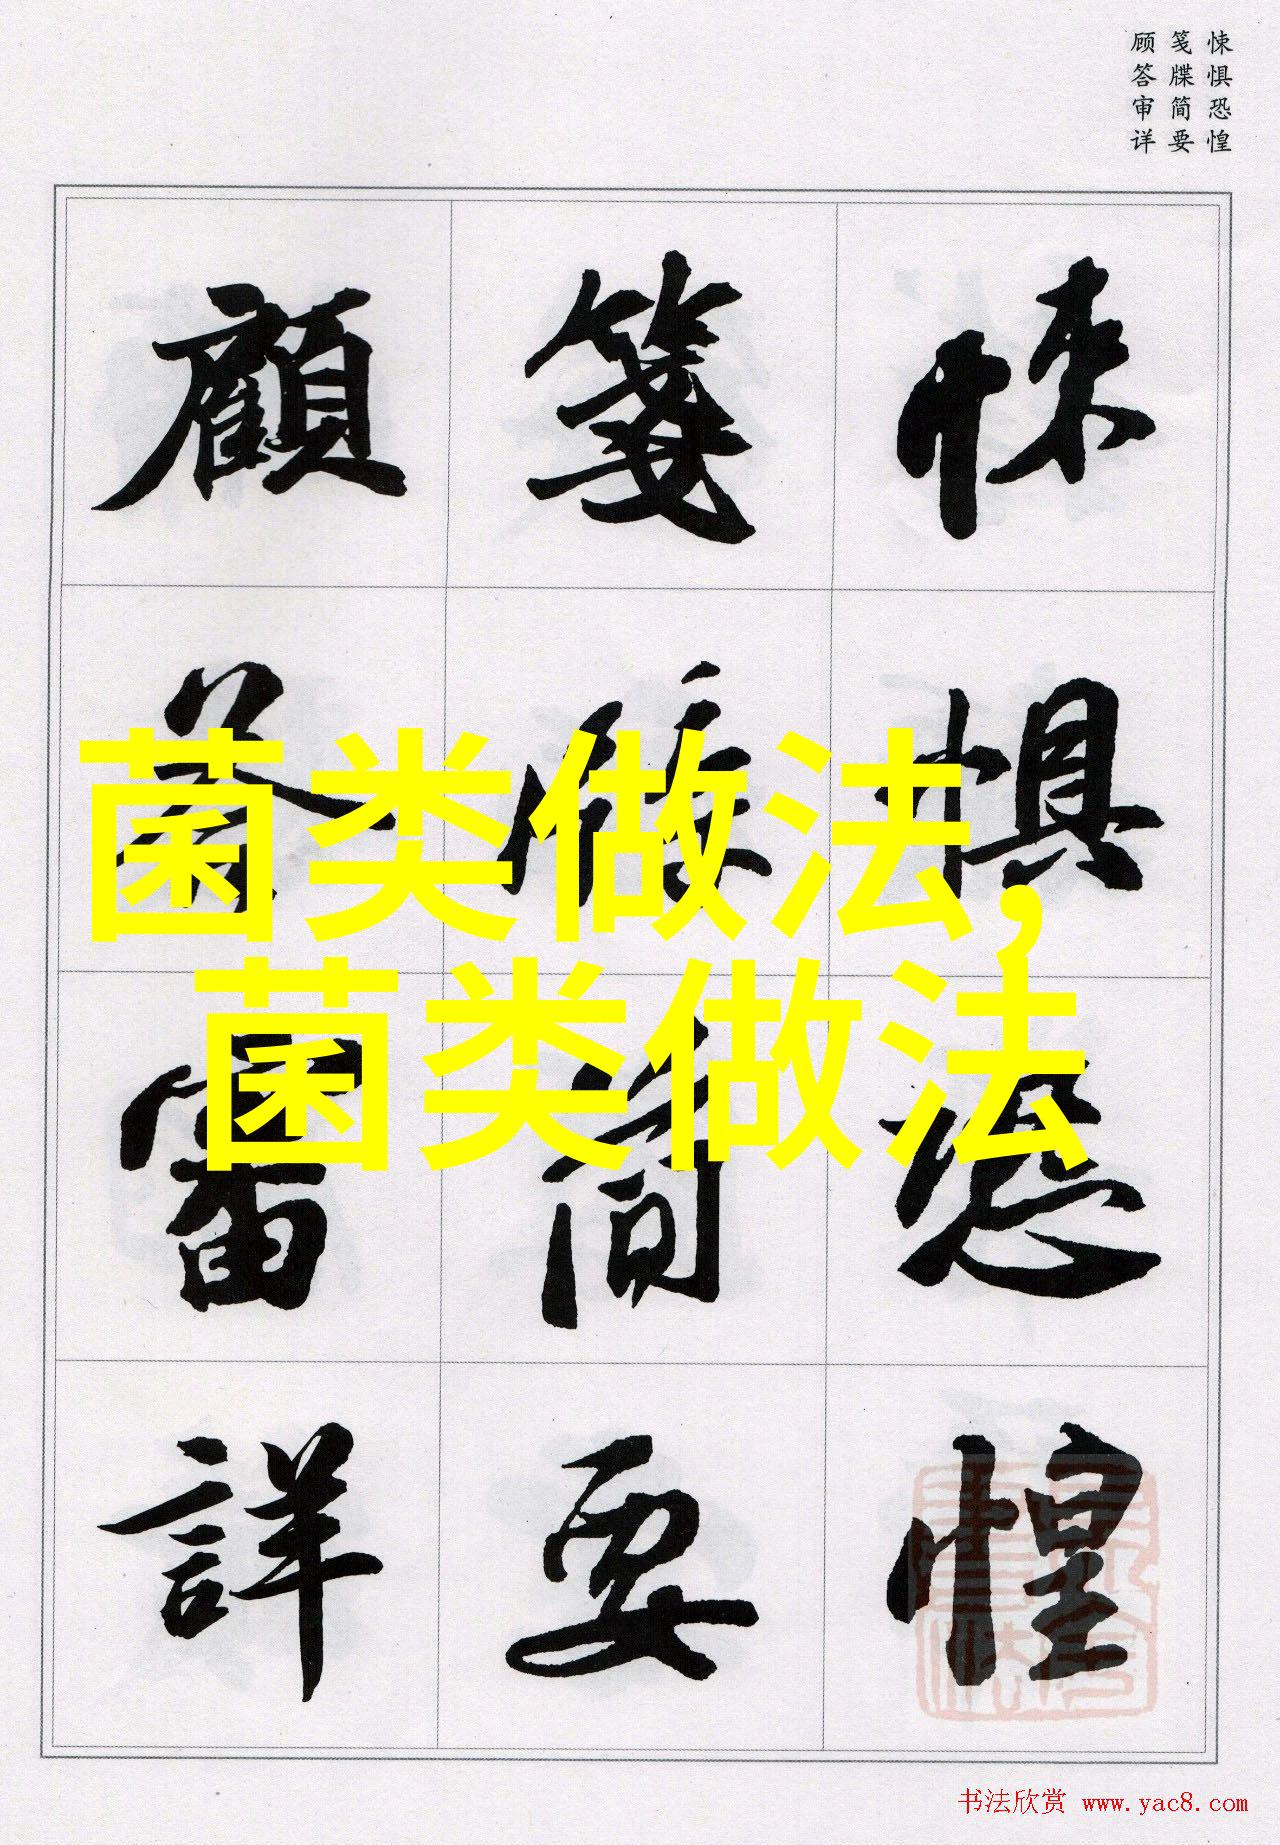 悚惧恐惶
笺牒简要
顾答审详
悚惧恐惶
箋牒簡要
顧答審詳
菌类做法,
菌类做法
书法欣赏 www.yac8.com